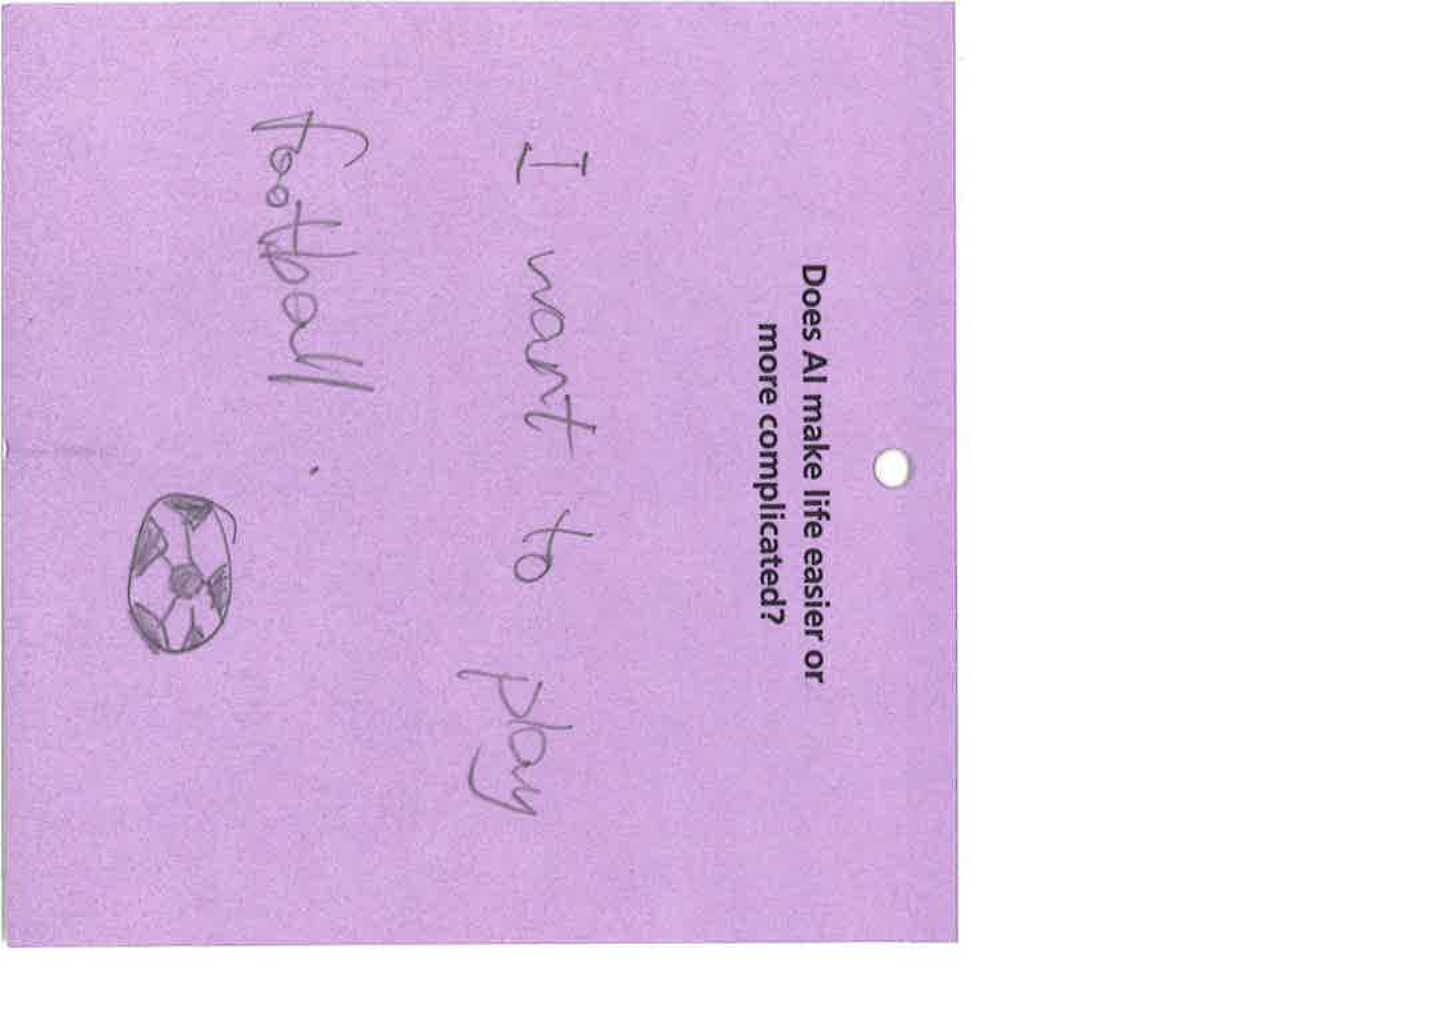 Does AI make life easier or
more complicated?
I want to play
football.